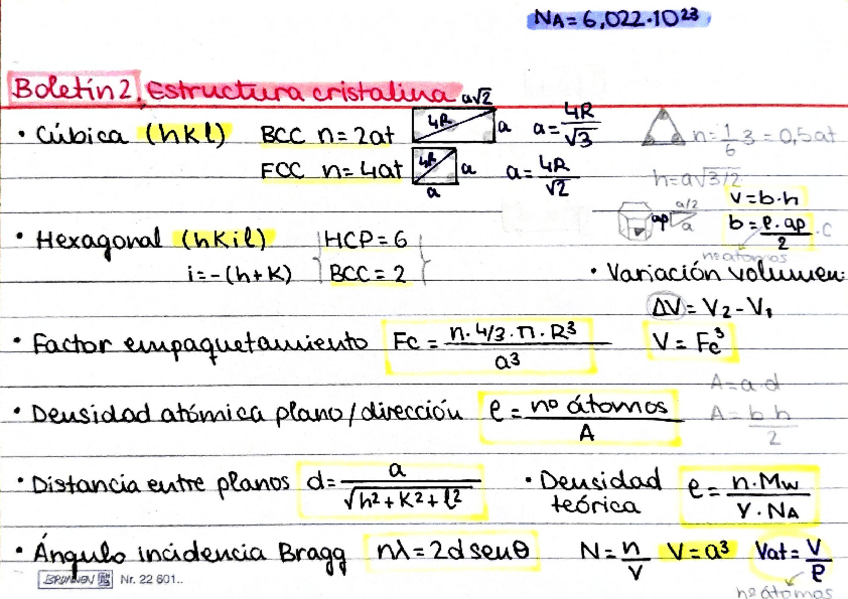 NA = 6,022·10²³
Boletín 2. Estructura cristalina
• Cúbica (hkl) BCC n=2at 4R a√2 a a = 4R/√3 n = 1/6 3 = 0,5at
FCC n=4at 4R a a a = 4R/√2 h = a√3/2
V = b·h
• Hexagonal (hkil) HCP = 6 ap a/2 a b = P·ap/2 · c
i = -(h+k) BCC = 2 nº átomos
• Variación volumen:
ΔV = V₂ - V₁
• Factor empaquetamiento Fc = n·4/3·π·R³/a³ V = Fc³
A = a·d
• Densidad atómica plano/dirección ρ = nº átomos/A A = b·h/2
• Distancia entre planos d = a/√h²+k²+l² • Densidad teórica ρ = n·Mw/V·NA
• Ángulo incidencia Bragg nλ = 2d senθ N = n/V V = a³ Vat = V/P
nº átomos
BRUNNEN Nr. 22 601..